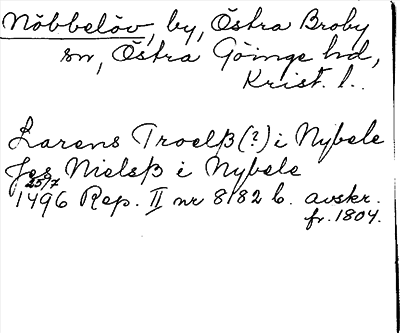 Nöbbelöv, by, Östra Broby
sn, Östra Göinge hd,
Krist. l.
Larens Troelß(?) i Nybele
Jes Nielsß i Nybele
25/7
1496 Rep. II nr 8182 b. avskr.
fr. 1804.